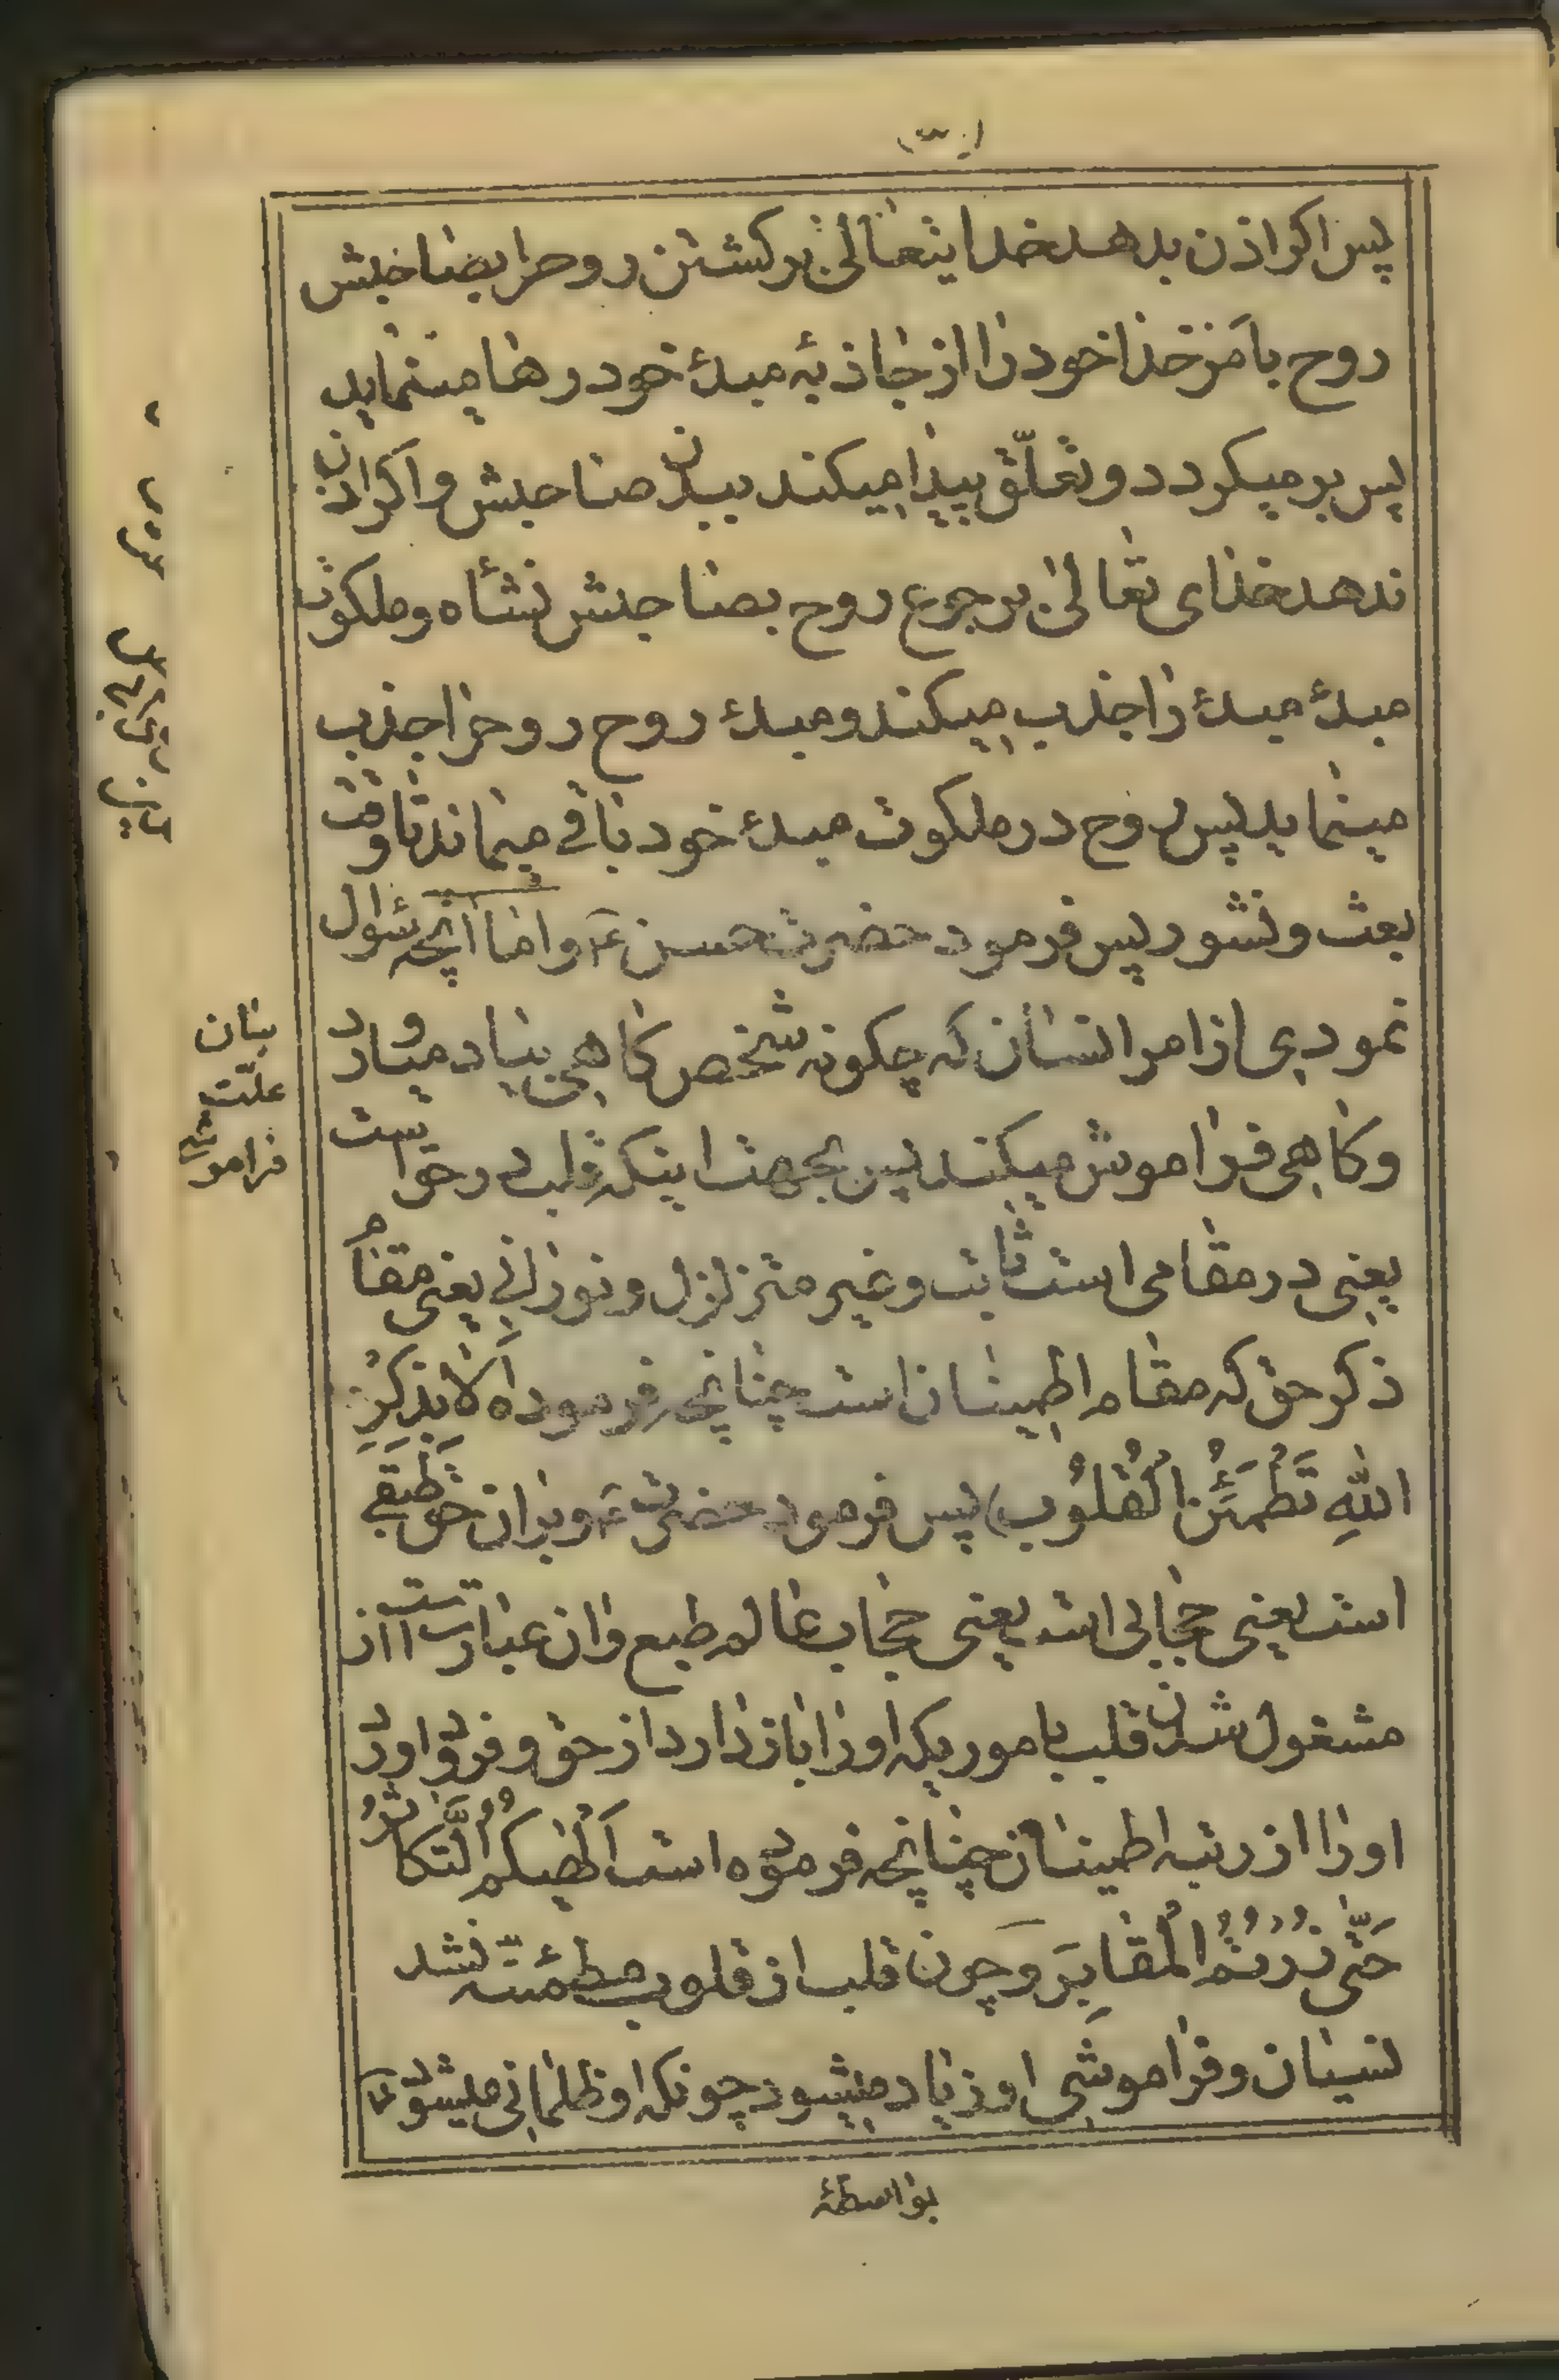 پس اکر اذن بدهد خدایتعالی بر کشتن روحرا بصاحبش
روح بامر خدا خود را از جاذبهٔ مبدء خود رها مینماید
پس بر میکردد و تعلّق پیدا میکند ببدن صاحبش و اکر اذن
ندهد خدای تعالی برجوع روح بصاحبش نشأه و ملکوت
مبدء مبدء را جذب میکند و مبدء روح روحرا جذب
مینماید پس روح در ملکوت مبدء خود باقی میماند تا وقت
بعث و نشور پس فرمود حضرت حسن ع و اما آنچه سئوال
نمودی از امر انسان که چکونه شخص کاهی بیاد میاورد
و کاهی فراموش میکند پس بجهت اینکه قلب در حق است
یعنی در مقامی است ثابت و غیر متزلزل و نورانی یعنی مقام
ذکر حق که مقام اطمینان است چنانچه فرموده اَلا بِذِکْرِ
اللهِ تَطْمَئِنُّ الْقُلُوب) پس فرمود حضرت ع و بر ان حق طبقی
است یعنی حجابی است یعنی حجاب عالم طبع و ان عبارتست از
مشغول شدن قلب باموریکه او را باز دارد از حق و فرود اورد
او را از رتبه اطمینان چنانچه فرموده است اَلْهیکُمُ التَّکاثُرُ
حَتّی زُرْتُمُ الْمَقابِرَ و چون قلب از قلوب مطمئنّه نشد
نسیان و فراموشی او زیاد میشود چونکه او ظلمانی میشود
بواسطهٔ
بیان
علّت
فراموشی